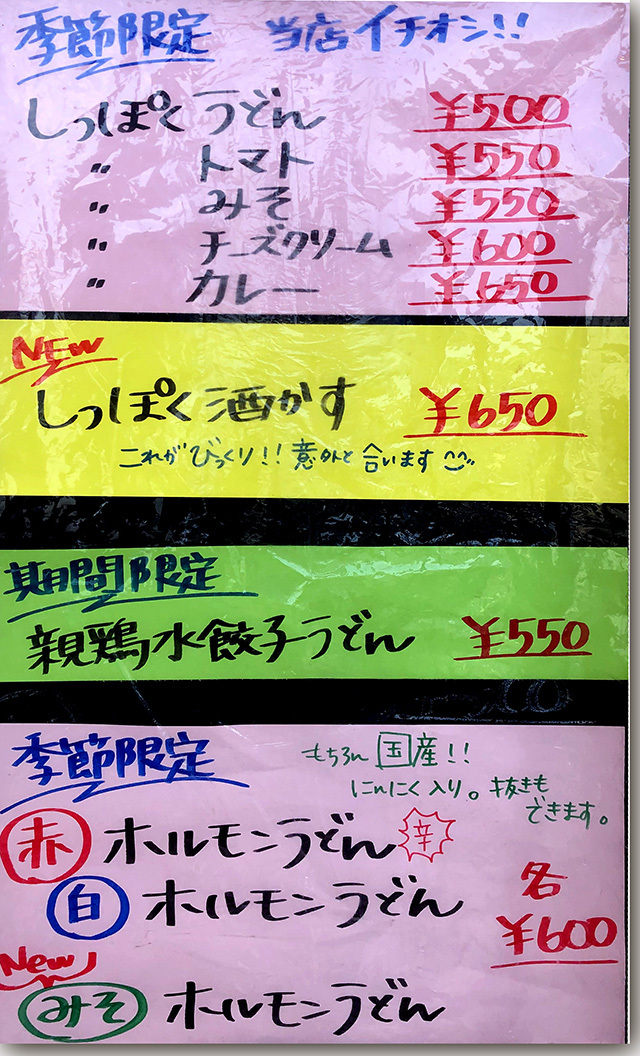 季節限定 当店イチオシ!!
しっぽくうどん ¥500
〃 トマト ¥550
〃 みそ ¥550
〃 チーズクリーム ¥600
〃 カレー ¥650
NEW
しっぽく酒かす ¥650
これがびっくり!!意外と合います
期間限定
親鶏水餃子うどん ¥550
季節限定
もちろん国産!!
にんにく入り。抜きも
できます。
赤ホルモンうどん 辛
白ホルモンうどん
各
¥600
New
みそホルモンうどん